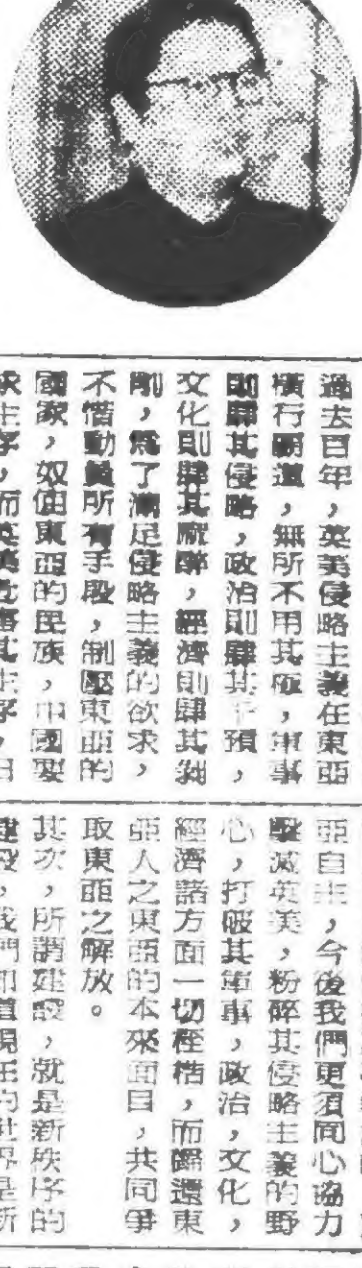 過去百年，英美侵略主義在東亞
橫行霸道，無所不用其極，軍事
則肆其侵略，政治則肆其干預，
文化則肆其麻醉，經濟則肆其剝
削，爲了滿足侵略主義的欲求，
不惜動員所有手段，制壓東亞的
國家，奴使東亞的民族，中國要
求生存，而英美危害其生存，日
亞自主，今後我們更須同心協力
擊滅英美，粉碎其侵略主義的野
心，打破其軍事，政治，文化，
經濟諸方面一切桎梏，而歸還東
亞人之東亞的本來面目，共同爭
取東亞之解放。
其次，所謂建設，就是新秩序的
建設，我們知道現在的世界是新